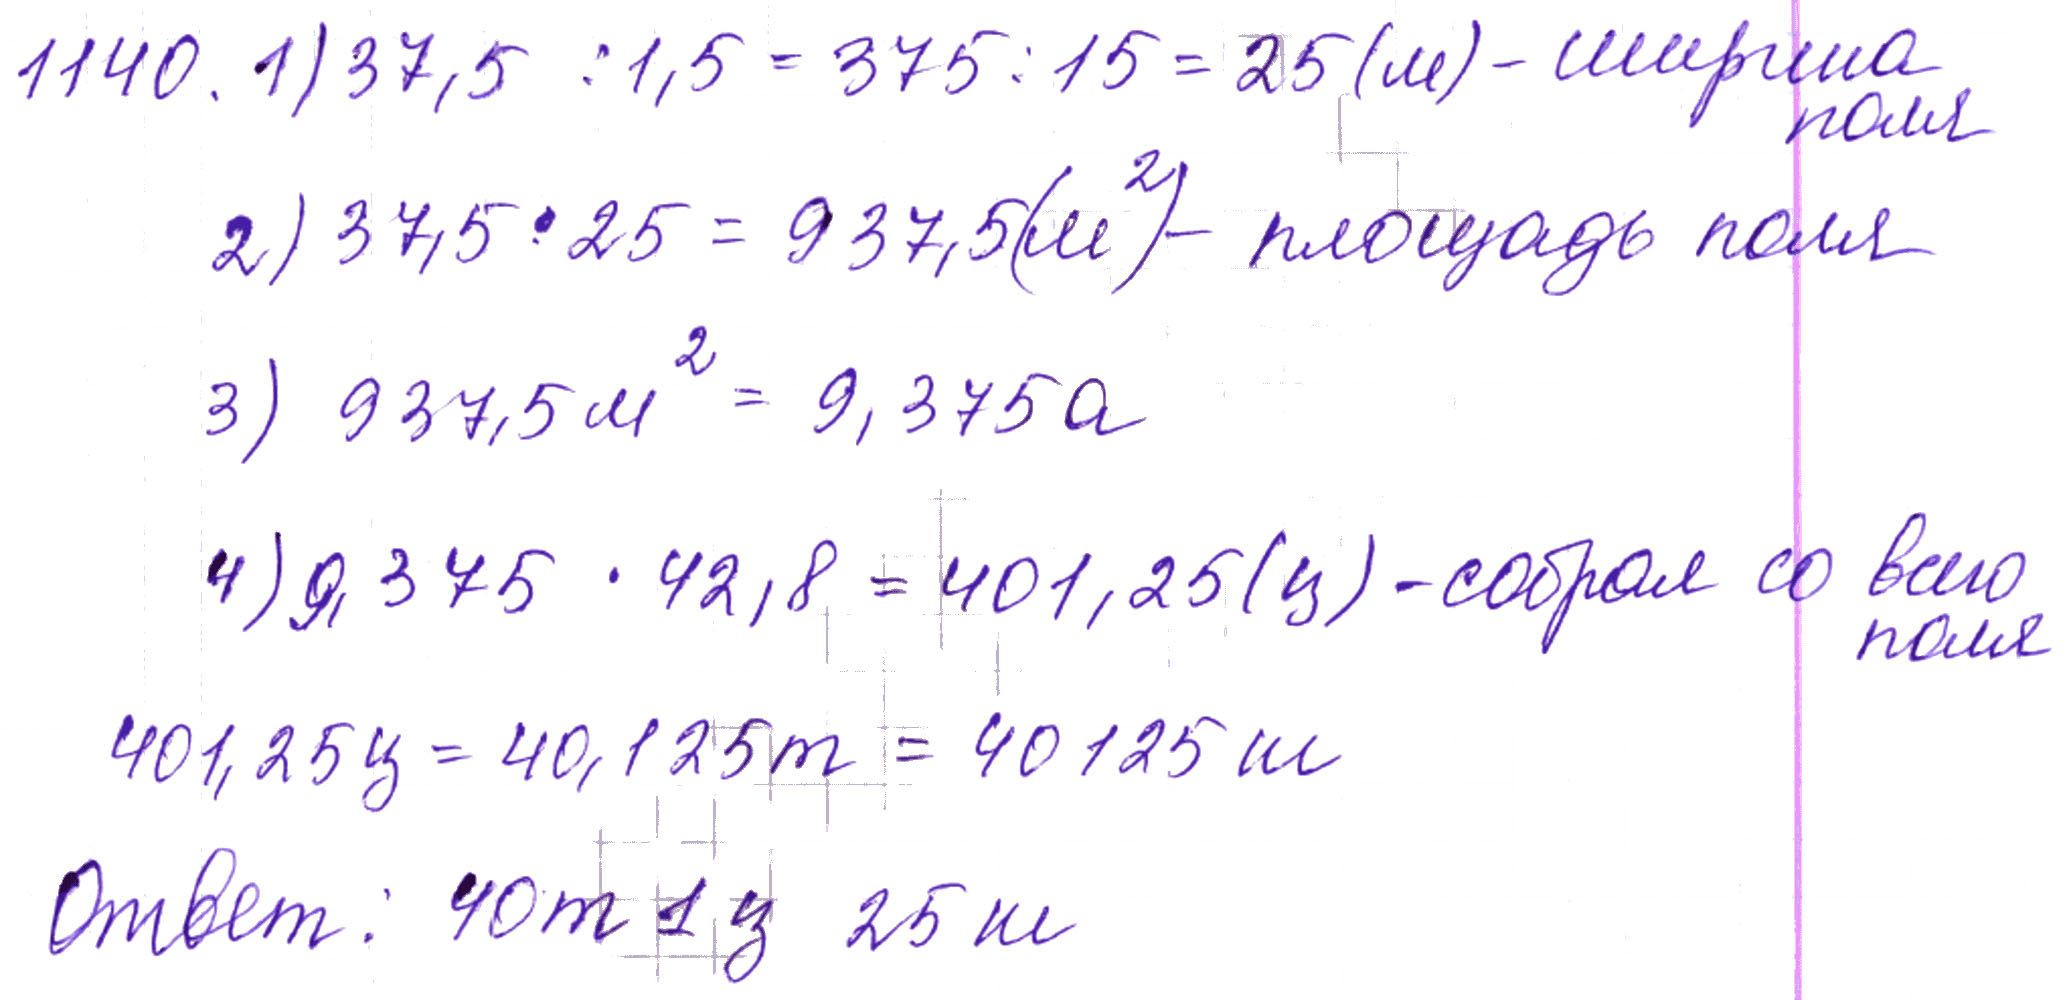 1140. 1) 37,5 : 1,5 = 375 : 15 = 25 (м) - ширина
поля
2) 37,5 · 25 = 937,5 (м²) - площадь поля
3) 937,5 м² = 9,375 а
4) 9,375 · 42,8 = 401,25 (ц) - собрал со всего
поля
401,25 ц = 40,125 т = 40125 кг
Ответ: 40 т 1 ц 25 кг